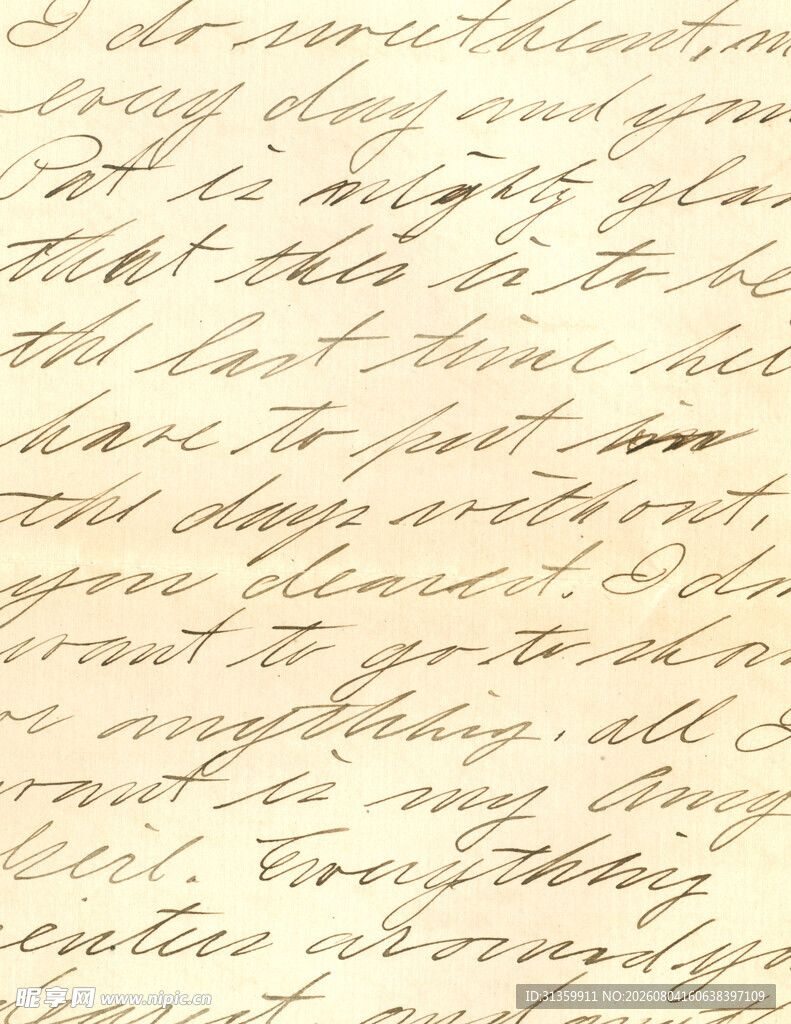 I do sweetheart, m
every day and you
Pat is mighty gla
that this is to be
the last time he'll
have to put in
the days without,
you dearest. I do
want to go to show
or anything, all I
want is my Amy
girl. Everything
centers around yo
dearest, and
昵享网 www.nipic.cn
ID:31359911 NO:20260804160638397109